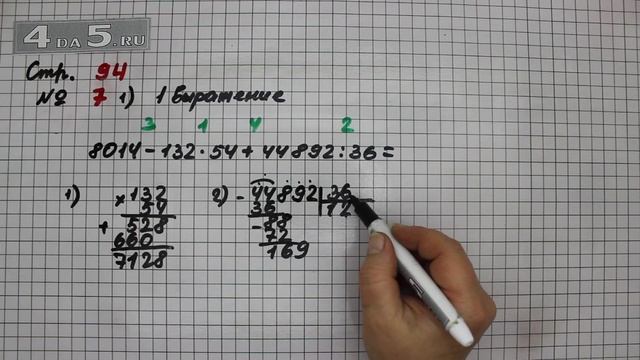 4DA5.RU
Стр. 94
№ 7 1) 1 Выражение
3 1 4 2
8014-132·54+44892:36=
1) ×132
54
+528
660
7128
2) -44892|36
36 12
-88
72
169